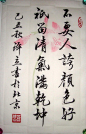 不要人誇顏色好
祇留清氣滿乾坤
己丑秋立書於北京